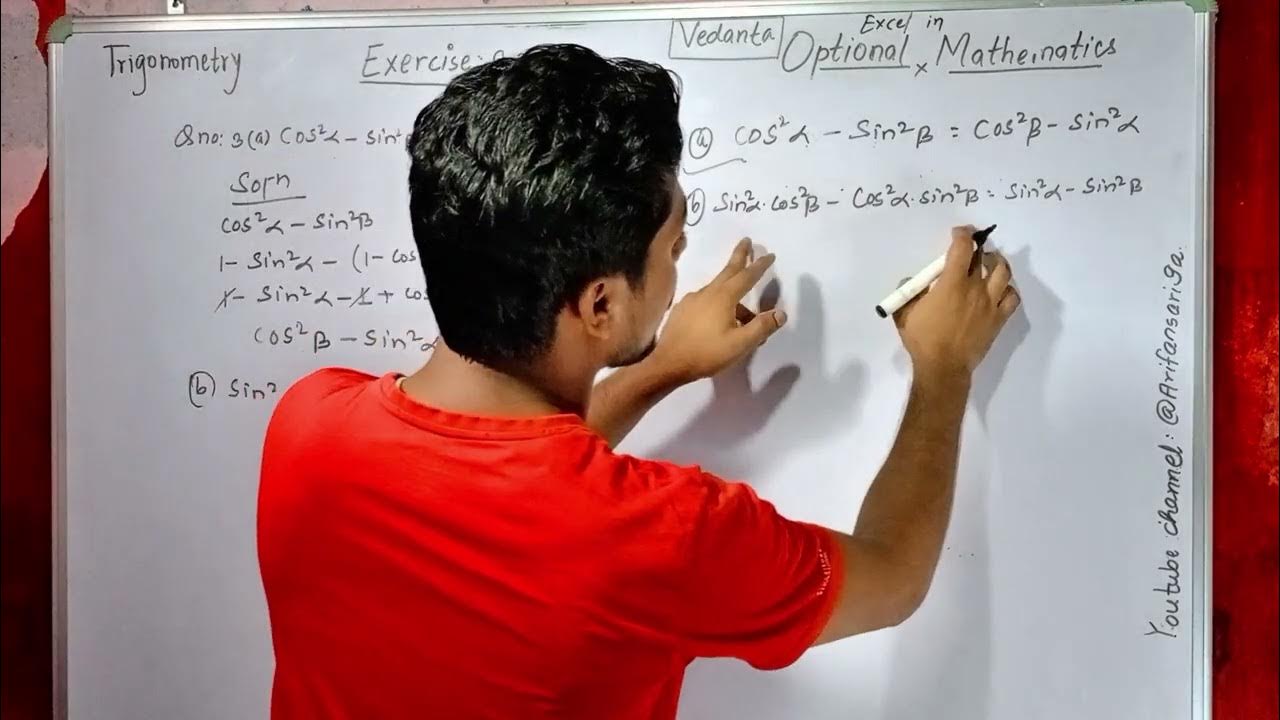 Trigonometry
Exercise:
Vedanta
Excel in
Optional Mathematics
Qno: 3(a) Cos²α - Sin²
Sorn
cos²α - sin²β
1 - Sin²α - (1 - cos
1 - Sin²α - 1 + cos
cos²β - sin²α
(b) Sin²
(a) cos²α - Sin²β = Cos²β - Sin²α
(b) Sin²α.cos²β - Cos²α.sin²β = Sin²α - Sin²β
Youtube channel: @Arifansari9a.